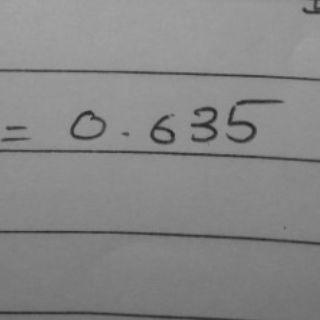 = 0.635